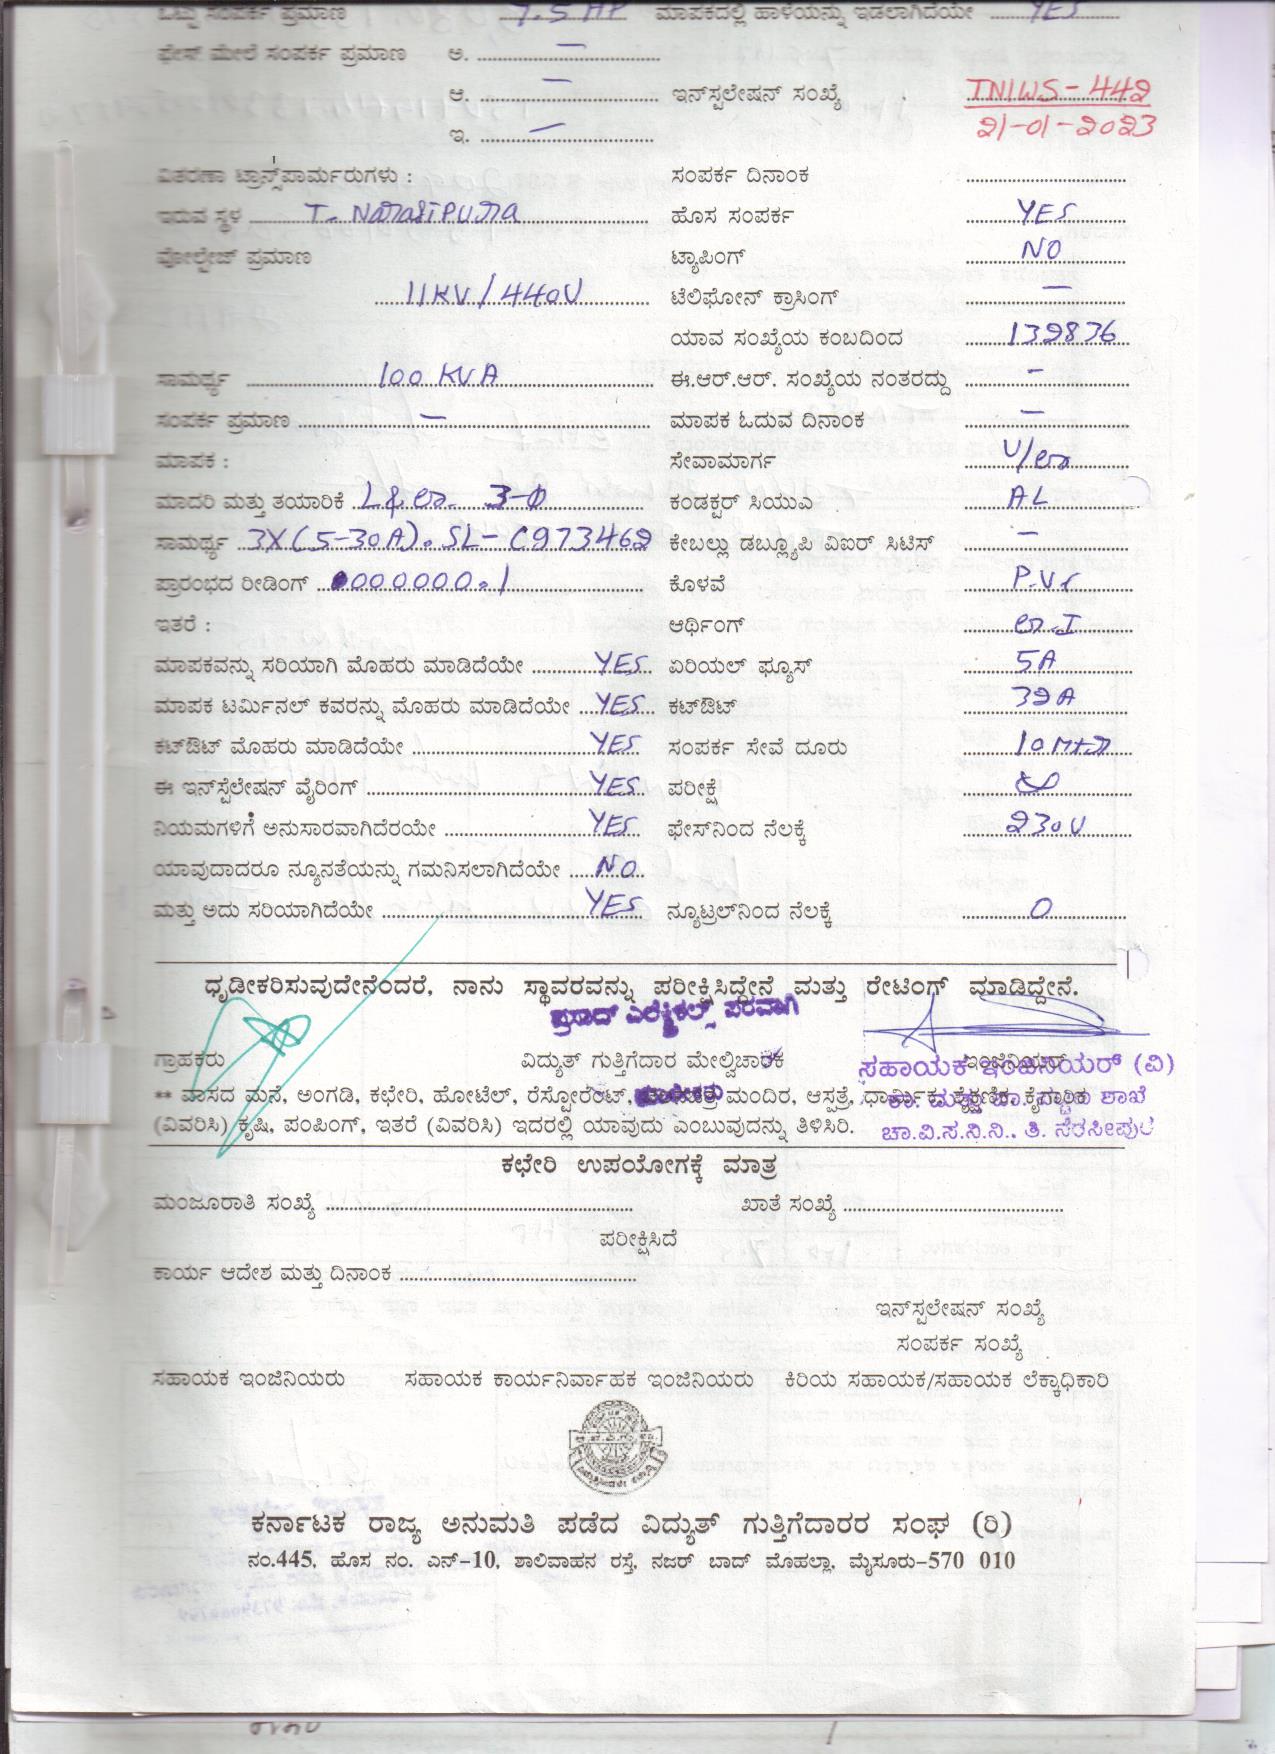 ಒಟ್ಟು ಸಂಪರ್ಕ ಪ್ರಮಾಣ 7.5 HP ಮಾಪಕದಲ್ಲಿ ಹಾಳೆಯನ್ನು ಇಡಲಾಗಿದೆಯೇ YES
ಫೇಸ್ ಮೇಲೆ ಸಂಪರ್ಕ ಪ್ರಮಾಣ ಅ. —
ಆ. — ಇನ್‌ಸ್ಪಲೇಷನ್ ಸಂಖ್ಯೆ TNIWS-442
ಇ. — 21-01-2023
ವಿತರಣಾ ಟ್ರಾನ್ಸ್‌ಪಾರ್ಮರುಗಳು : ಸಂಪರ್ಕ ದಿನಾಂಕ
ಇರುವ ಸ್ಥಳ T. Narasipura ಹೊಸ ಸಂಪರ್ಕ YES
ವೋಲ್ಟೇಜ್ ಪ್ರಮಾಣ ಟ್ಯಾಪಿಂಗ್ NO
11KV/440V ಟೆಲಿಫೋನ್ ಕ್ರಾಸಿಂಗ್ —
ಯಾವ ಸಂಖ್ಯೆಯ ಕಂಬದಿಂದ 132836
ಸಾಮರ್ಥ್ಯ 100 KVA ಈ.ಆರ್.ಆರ್. ಸಂಖ್ಯೆಯ ನಂತರದ್ದು —
ಸಂಪರ್ಕ ಪ್ರಮಾಣ — ಮಾಪಕ ಓದುವ ದಿನಾಂಕ —
ಮಾಪಕ : ಸೇವಾಮಾರ್ಗ
ಮಾದರಿ ಮತ್ತು ತಯಾರಿಕೆ 3-Φ ಕಂಡಕ್ಟರ್ ಸಿಯುಎ AL
ಸಾಮರ್ಥ್ಯ 3X(5-30A). SL- C973462 ಕೇಬಲ್ಲು ಡಬ್ಲ್ಯೂಪಿ ವಿಐರ್ ಸಿಟಿಸ್ —
ಪ್ರಾರಂಭದ ರೀಡಿಂಗ್ 0000000.1 ಕೊಳವೆ P.V.C
ಇತರೆ : ಆರ್ಥಿಂಗ್
ಮಾಪಕವನ್ನು ಸರಿಯಾಗಿ ಮೊಹರು ಮಾಡಿದೆಯೇ YES ಏರಿಯಲ್ ಫ್ಯೂಸ್ 5A
ಮಾಪಕ ಟರ್ಮಿನಲ್ ಕವರನ್ನು ಮೊಹರು ಮಾಡಿದೆಯೇ YES ಕಟ್‌ಔಟ್ 32A
ಕಟ್‌ಔಟ್ ಮೊಹರು ಮಾಡಿದೆಯೇ YES ಸಂಪರ್ಕ ಸೇವೆ ದೂರು 10 Mtr
ಈ ಇನ್‌ಸ್ಪೆಲೇಷನ್ ವೈರಿಂಗ್ YES ಪರೀಕ್ಷೆ
ನಿಯಮಗಳಿಗೆ ಅನುಸಾರವಾಗಿದೆರಯೇ YES ಫೇಸ್‌ನಿಂದ ನೆಲಕ್ಕೆ 230V
ಯಾವುದಾದರೂ ನ್ಯೂನತೆಯನ್ನು ಗಮನಿಸಲಾಗಿದೆಯೇ NO
ಮತ್ತು ಅದು ಸರಿಯಾಗಿದೆಯೇ YES ನ್ಯೂಟ್ರಲ್‌ನಿಂದ ನೆಲಕ್ಕೆ 0
ಧೃಡೀಕರಿಸುವುದೇನೆಂದರೆ, ನಾನು ಸ್ಥಾವರವನ್ನು ಪರೀಕ್ಷಿಸಿದ್ದೇನೆ ಮತ್ತು ರೇಟಿಂಗ್ ಮಾಡಿದ್ದೇನೆ.
ಪ್ರಸಾದ್ ಎಲೆಕ್ಟ್ರಿಕಲ್ಸ್ ಪರವಾಗಿ
ಗ್ರಾಹಕರು ವಿದ್ಯುತ್ ಗುತ್ತಿಗೆದಾರ ಮೇಲ್ವಿಚಾರಕ ಇಂಜಿನಿಯರ್
ಸಹಾಯಕ ಇಂಜಿನಿಯರ್ (ವಿ)
** ವಾಸದ ಮನೆ, ಅಂಗಡಿ, ಕಛೇರಿ, ಹೋಟೆಲ್, ರೆಸ್ಟೋರೆಂಟ್, ಮಂದಿರ, ಆಸ್ಪತ್ರೆ, ಧಾರ್ಮಿಕ, ಶೈಕ್ಷಣಿಕ, ಕೈಗಾರಿಕ
(ವಿವರಿಸಿ) ಕೃಷಿ, ಪಂಪಿಂಗ್, ಇತರೆ (ವಿವರಿಸಿ) ಇದರಲ್ಲಿ ಯಾವುದು ಎಂಬುವುದನ್ನು ತಿಳಿಸಿರಿ.
ಚಾ.ವಿ.ಸ.ನಿ.ನಿ., ತಿ. ನರಸೀಪುರ
ಕಛೇರಿ ಉಪಯೋಗಕ್ಕೆ ಮಾತ್ರ
ಮಂಜೂರಾತಿ ಸಂಖ್ಯೆ ಖಾತೆ ಸಂಖ್ಯೆ
ಪರೀಕ್ಷಿಸಿದೆ
ಕಾರ್ಯ ಆದೇಶ ಮತ್ತು ದಿನಾಂಕ
ಇನ್‌ಸ್ಪಲೇಷನ್ ಸಂಖ್ಯೆ
ಸಂಪರ್ಕ ಸಂಖ್ಯೆ
ಸಹಾಯಕ ಇಂಜಿನಿಯರು ಸಹಾಯಕ ಕಾರ್ಯನಿರ್ವಾಹಕ ಇಂಜಿನಿಯರು ಕಿರಿಯ ಸಹಾಯಕ/ಸಹಾಯಕ ಲೆಕ್ಕಾಧಿಕಾರಿ
ಕರ್ನಾಟಕ ರಾಜ್ಯ ಅನುಮತಿ ಪಡೆದ ವಿದ್ಯುತ್ ಗುತ್ತಿಗೆದಾರರ ಸಂಘ (ರಿ)
ನಂ.445, ಹೊಸ ನಂ. ಎನ್-10, ಶಾಲಿವಾಹನ ರಸ್ತೆ, ನಜರ್ ಬಾದ್ ಮೊಹಲ್ಲಾ, ಮೈಸೂರು-570 010